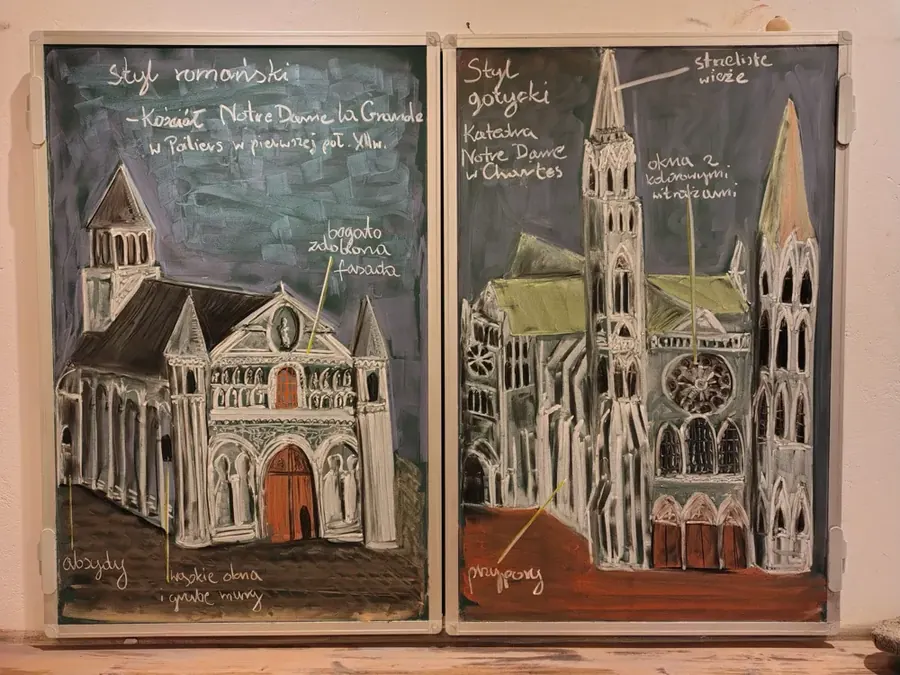 Styl romański
-Kościół Notre Dame la Grande
w Poitiers w pierwszej poł. XIIw.
bogato
zdobiona
fasada
absydy
wąskie okna
i grube mury
Styl
gotycki
Katedra
Notre Dame
w Chartes
strzeliste
wieże
okna z
kolorowymi
witrażami
przypory